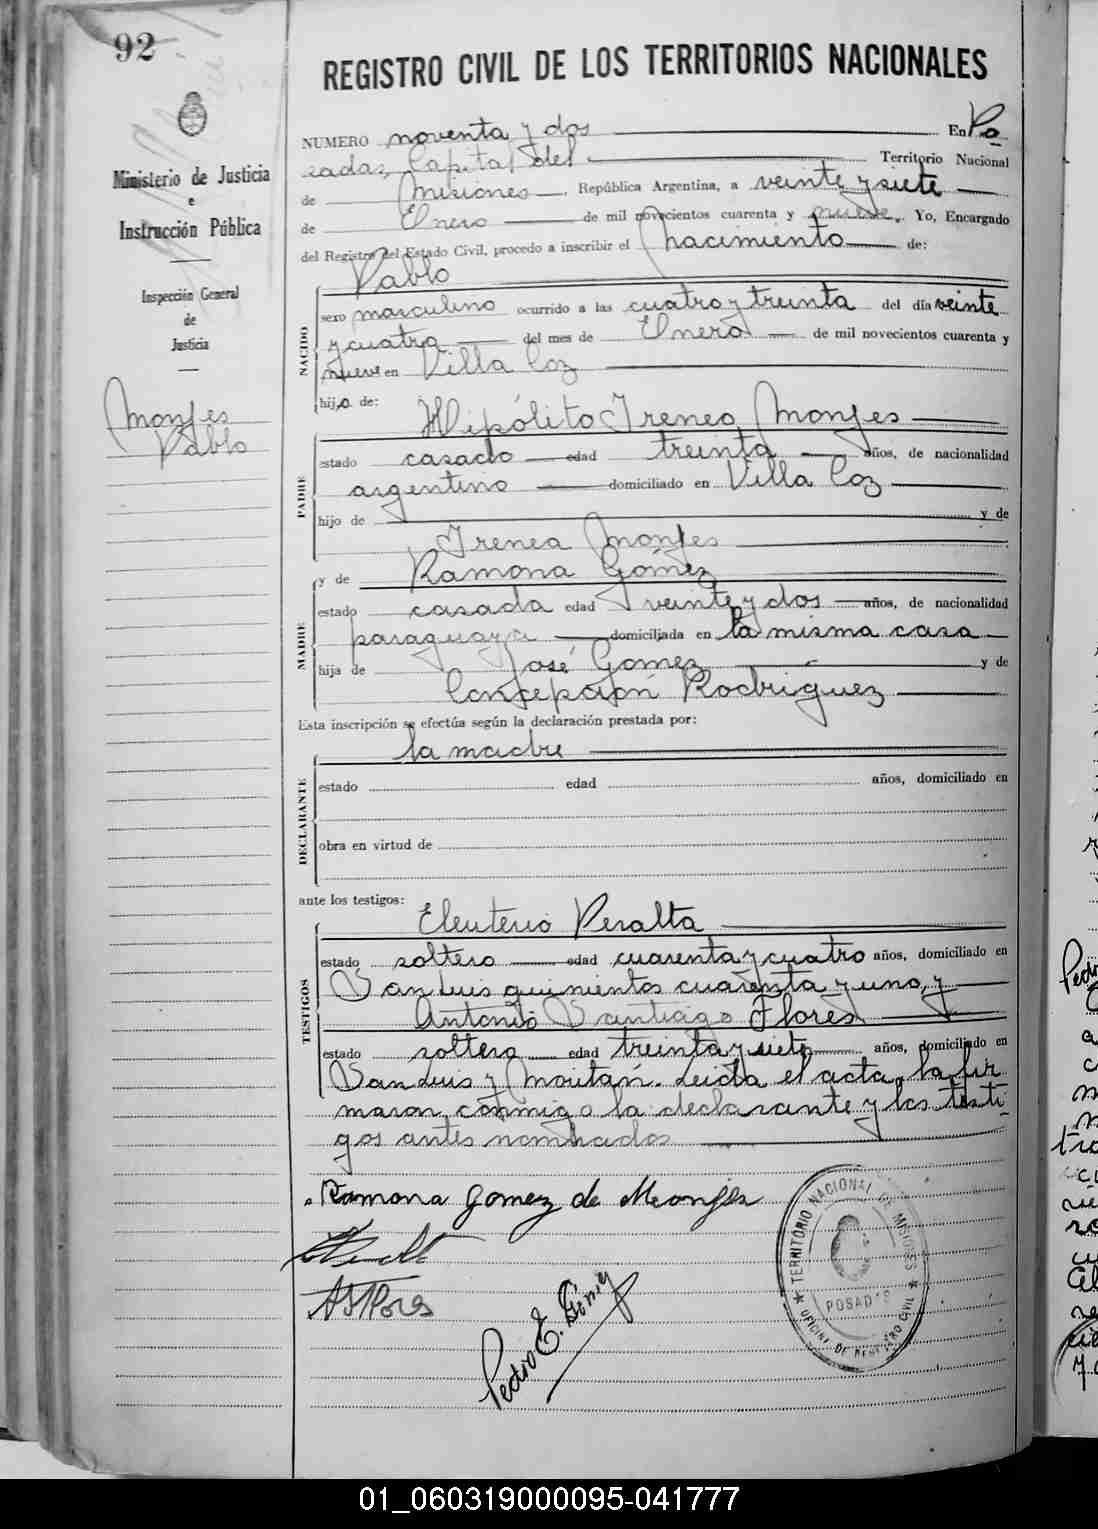 92
REGISTRO CIVIL DE LOS TERRITORIOS NACIONALES
Ministerio de Justicia
e
Instrucción Pública
Inspección General
de
Justicia
Monjes
Pablo
NUMERO noventa y dos En Po
sadas, Capital del Territorio Nacional
de Misiones, República Argentina, a veinte y siete
de Enero de mil novecientos cuarenta y nueve. Yo, Encargado
del Registro del Estado Civil, procedo a inscribir el nacimiento de:
NACIDO
Pablo
sexo masculino ocurrido a las cuatro y treinta del día veinte
y cuatro del mes de Enero de mil novecientos cuarenta y
nueve en Villa Coz
hijo de:
PADRE
Hipólito Ireneo Monjes
estado casado edad treinta años, de nacionalidad
argentino domiciliado en Villa Coz
hijo de y de
Irenea Monjes
MADRE
y de Ramona Gómez
estado casada edad veinte y dos años, de nacionalidad
paraguaya domiciliada en la misma casa
hija de José Gomez y de
Concepción Rodriguez
Esta inscripción se efectúa según la declaración prestada por:
DECLARANTE
la madre
estado edad años, domiciliado en
obra en virtud de
ante los testigos:
TESTIGOS
Eleuterio Peralta
estado soltero edad cuarenta y cuatro años, domiciliado en
San Luis quinientos cuarenta y uno, y
Antonio Santiago Flores
estado soltero edad treinta y siete años, domiciliado en
San Luis y Moritán. Leída el acta, la fir
maron conmigo la declarante y los testi
gos antes nombrados
Ramona Gomez de Monjes
ASFlores
Pedro E.
TERRITORIO NACIONAL DE MISIONES
POSADAS
OFICINA DE REGISTRO CIVIL
01_060319000095-041777